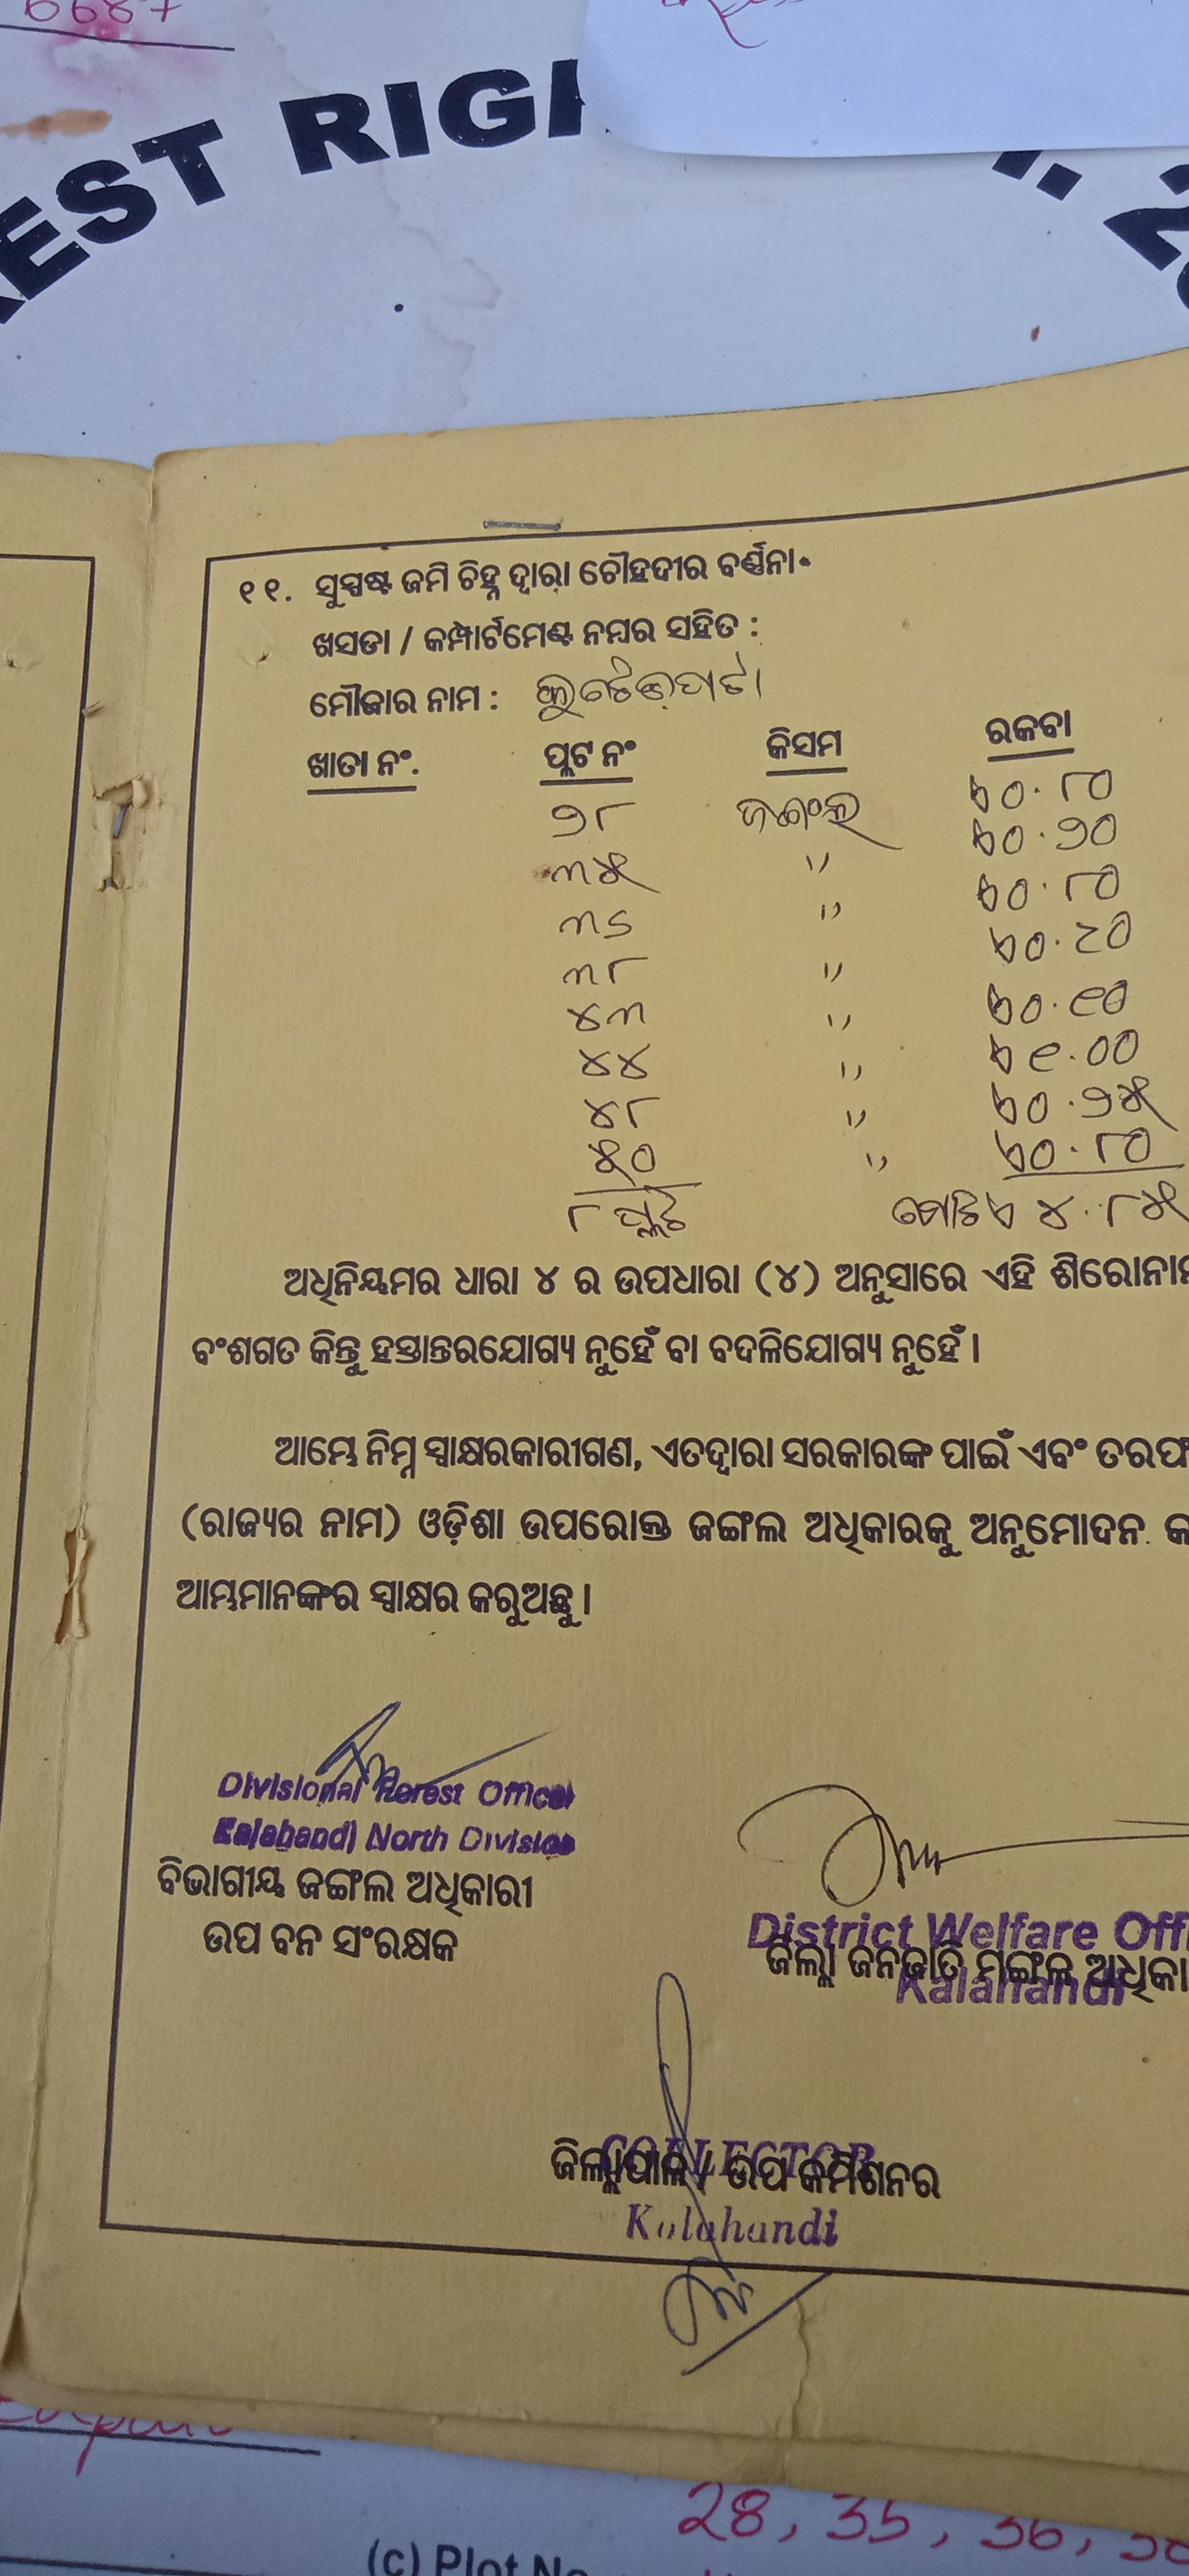 6687
EST RIGH
୧୧. ସୁସ୍ପଷ୍ଟ ଜମି ଚିହ୍ନ ଦ୍ୱାରା ଚୌହଦୀର ବର୍ଣ୍ଣନା
ଖସଡା / କମ୍ପାର୍ଟମେଣ୍ଟ ନମ୍ବର ସହିତ :
ମୌଜାର ନାମ :
ଖାତା ନଂ. ପ୍ଲଟ ନଂ କିସମ ରକବା
୨୮ ଜଙ୍ଗଲ ଏ୦.୮୦
୩୫ " ଏ୦.୨୦
୩୬ " ଏ୦.୮୦
୩୮ " ଏ୦.୯୦
୪୩ " ଏ୦.୧୦
୪୪ " ଏ୧.୦୦
୪୮ " ଏ୦.୨୫
୫୦ " ଏ୦.୮୦
୮ ପ୍ଲଟ ମୋଟ ଏ ୪.୮୫
ଅଧିନିୟମର ଧାରା ୪ ର ଉପଧାରା (୪) ଅନୁସାରେ ଏହି ଶିରୋନାମ
ବଂଶଗତ କିନ୍ତୁ ହସ୍ତାନ୍ତରଯୋଗ୍ୟ ନୁହେଁ ବା ବଦଳିଯୋଗ୍ୟ ନୁହେଁ ।
ଆମ୍ଭେ ନିମ୍ନ ସ୍ୱାକ୍ଷରକାରୀଗଣ, ଏତଦ୍ୱାରା ସରକାରଙ୍କ ପାଇଁ ଏବଂ ତରଫ
(ରାଜ୍ୟର ନାମ) ଓଡ଼ିଶା ଉପରୋକ୍ତ ଜଙ୍ଗଲ ଅଧିକାରକୁ ଅନୁମୋଦନ କ
ଆମ୍ଭମାନଙ୍କର ସ୍ୱାକ୍ଷର କରୁଅଛୁ ।
Divisional Forest Officer
Kalahandi North Division
ବିଭାଗୀୟ ଜଙ୍ଗଲ ଅଧିକାରୀ
ଉପ ବନ ସଂରକ୍ଷକ
District Welfare Offi
ଜିଲ୍ଲା ଜନଜାତି ମଙ୍ଗଳ ଅଧିକା
Kalahandi
COLLECTOR
ଜିଲ୍ଲାପାଳ / ଉପ କମିଶନର
Kalahandi
28, 35, 36, 38
(c) Plot No